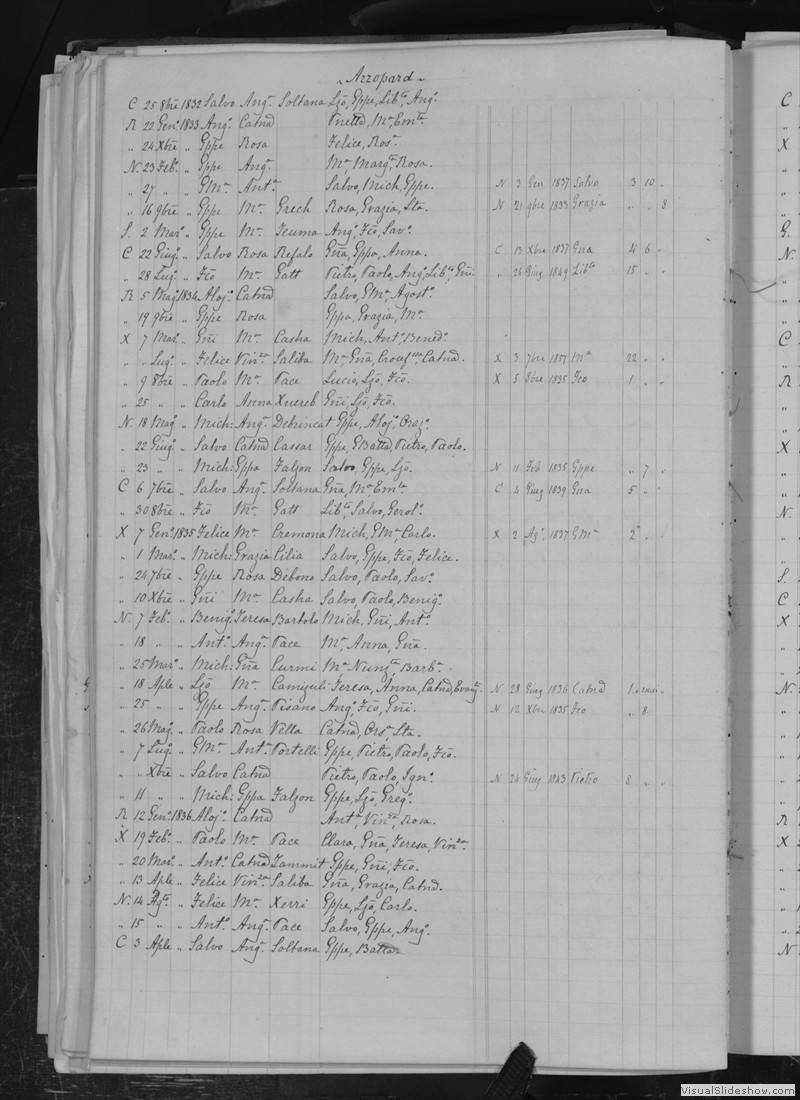 Azzopard
C 25 8bre 1832 Salvo Angª Soltana Ljō, Gppe, Libta, Angª
R 22 Genº 1833 Angº Catnā Pietta, Mª, Emta.
„ 24 Xbre „ Gppe Rosa Felice, Rosª.
N. 23 Febº „ Gppe Angª Mª, Margta, Rosa.
„ 27 „ „ GMª Antª Salvo, Mich, Gppe. N 3 Gen 1837 Salvo 3 10 „
„ 16 9bre „ Gppe Mª Grech Rosa, Grazia, Sta. N 21 9bre 1833 Grazia „ „ 8
S. 2 Marº „ Gppe Mª Teuma Angº, Fcō, Savº.
C 22 Giugº „ Salvo Rosa Refalo Gña, Gppa, Anna. C 13 Xbre 1837 Gna 4 6 „
„ 28 Lugº „ Fcō Mª Gatt Pietro, Paolo, Angº, Libto, Gñi „ 26 Giug 1849 Libto 15 „ „
R 5 Magº 1834 Alojº Catnā Salvo, GMª, Agostº.
„ 19 9bre „ Gppe Rosa Gppa, Grazia, Mª.
X 7 Marº „ Gñi Mª Casha Mich, Antº, Benedº.
„ „ Lugº „ Felice Vinza Saliba Mª, Gña, Catnā. X 3 7bre 1857 Mª 22 „ „
„ 9 8bre „ Paolo Mª Pace Lucio, Ljō, Fcō. X 5 8bre 1835 Fco 1 „ „
„ 25 „ „ Carlo Anna Xuereb Gñi, Ljō, Fcō.
N. 18 Magº „ Mich: Angª Debrincat Gppe, Alojº, Orazº.
„ 22 Giugº „ Salvo Catnā Cassar Gppe, GBatta, Pietro, Paolo.
„ 23 „ „ Mich: Gppa Falzon Salvo, Gppe, Ljō. N 11 Feb 1835 Gppe „ 7 „
C 6 7bre „ Salvo Angª Soltana Gña, Mª, Emta C 4 Giug 1839 Gna 5 „ „
„ 30 8bre „ Fcō Mª Gatt Libta, Salvo, Gerolº.
X 7 Genº 1835 Felice Mª Cremona Mich, GMª, Carlo. X 2 Agº 1837 GMª 2 „ „
„ 1 Marº „ Mich: Grazia Cilia Salvo, Gppe, Fcō, Felice.
„ 24 7bre „ Gppe Rosa Debono Salvo, Paolo, Savº.
„ 10 Xbre „ Gñi Mª Casha Salvo, Paolo, Benigº.
N. 7 Febº „ Benigº Teresa Bartolo Mich, Gñi, Antº.
„ 18 „ „ Antº Angª Pace Mª, Anna, Gña.
„ 25 Marº „ Mich: Gña Curmi Mª, Nunzta, Barbª.
„ 18 Aple „ Ljō Mª Camiguli Teresa, Anna, Catnā, N 28 Giug 1836 Catnā 1
„ 25 „ „ Gppe Angª Pisano Angº, Fcō, Gñi. N 12 Xbre 1835 Fco „ 8
„ 26 Magº „ Paolo Rosa Vella Catnā, Orsª, Sta.
„ 7 Lugº „ GMª Antª Portelli Gppe, Pietro, Paolo, Fcō.
„ „ Xbre „ Salvo Catnā Pietro, Paolo, Ignº. N 24 Giug 1843 Pietro 8 „ „
„ 11 „ „ Mich: Gppa Falzon Gppe, Ljō, Gregº.
R 12 Genº 1836 Alojº Catnā Antª, Vinza, Rosa.
X 19 Febº „ Paolo Mª Pace Clara, Gña, Teresa, Vinza.
„ 20 Marº „ Antº Catnā Zammit Gppe, Gñi, Fcō.
„ 13 Aple „ Felice Vinza Saliba Gña, Grazia, Catnā.
N. 14 Agto „ Felice Mª Xerri Gppe, Ljō, Carlo.
„ 15 „ „ Antº Angª Pace Salvo, Gppe, Angº.
C 3 Aple „ Salvo Angª Soltana Gppe, Batta
VisualSlideshow.com